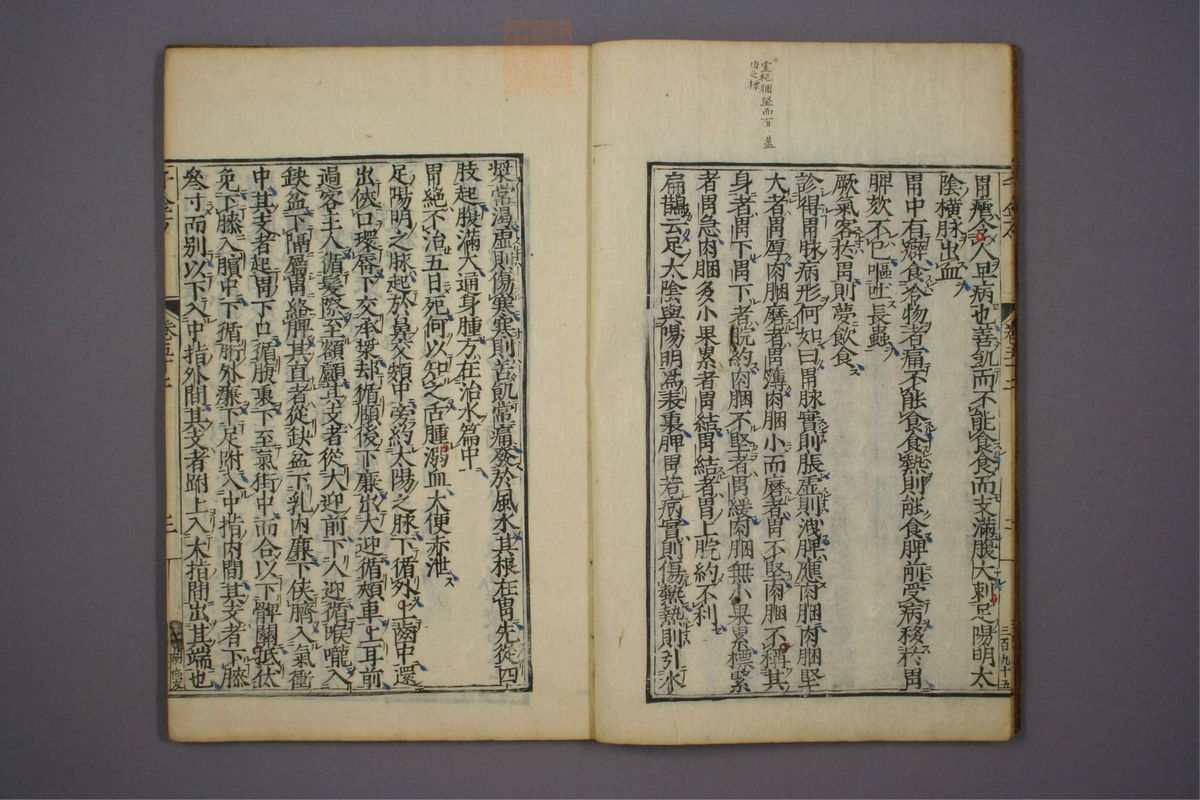 靈枢䐃堅而有
蓋
肉之標
胃瘧令人且病也善飢而不能食食而支滿腹大刺足陽明太
陰橫脉出血
胃中有癖食冷物者痛不能食食熱則能食脾前受病移於胃
脾欬不已嘔吐長蟲
厥氣客於胃則夢飲食
診得胃脉病形何如曰胃脉實則脹虛則洩脾應肉䐃肉䐃堅
大者胃厚肉䐃麽者胃薄肉䐃小而麽者胃不堅肉䐃不稱其
身者胃下胃下者脘約肉䐃不堅者胃緩肉䐃無小果累標緊
者胃急肉䐃多小果累者胃結胃結者胃上脘約不利
扁鵲云足太陰與陽明爲表裏脾胃若病實則傷熱熱則引水
三百九十五
漿常渴虛則傷寒寒則苦飢常痛發於風水其根在胃先從四
肢起腹滿大通身腫方在治水篇中
胃絕不治五日死何以知之舌腫溺血大便赤泄
足陽明之脉起於鼻交頞中旁約太陽之脉下循外上齒中還
出俠口環脣下交承漿却循頤後下廉出大迎循頰車上耳前
過客主人循髮際至額顱其支者從大迎前下人迎循喉嚨入
缺盆下隔屬胃絡脾其直者從缺盆下乳內廉下俠臍入氣衝
中其支者起胃下口循腹裏下至氣街中而合以下髀關抵伏
兔下膝入臏中下循胻外廉下足跗入中指內間其支者下膝
參寸而別以下入中指外間其支者跗上入大指間出其端也